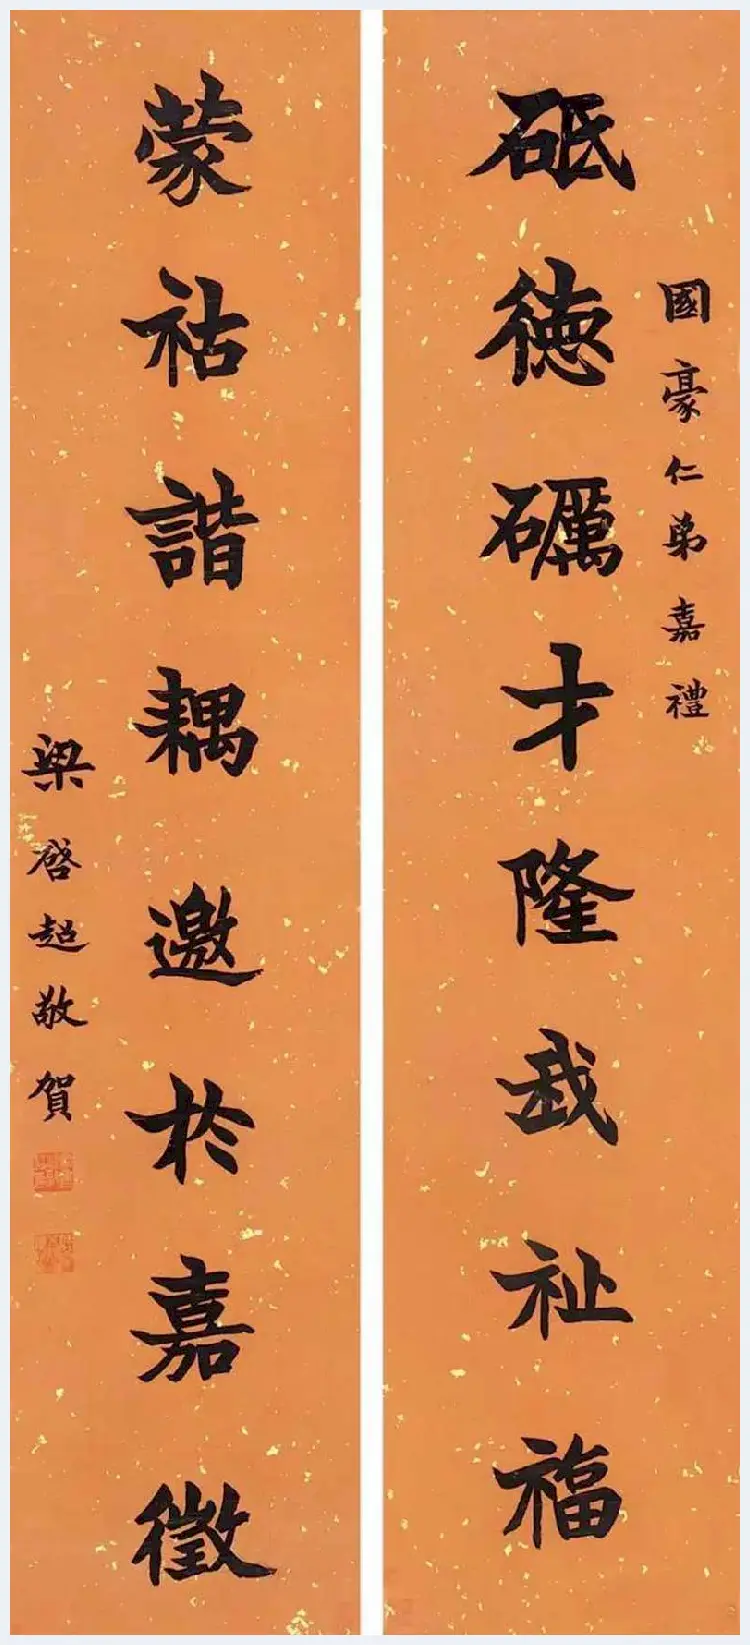 國豪仁弟嘉禮
砥德礪才隆我祉福
蒙祜諧耦邀於嘉徵
梁啓超敬賀